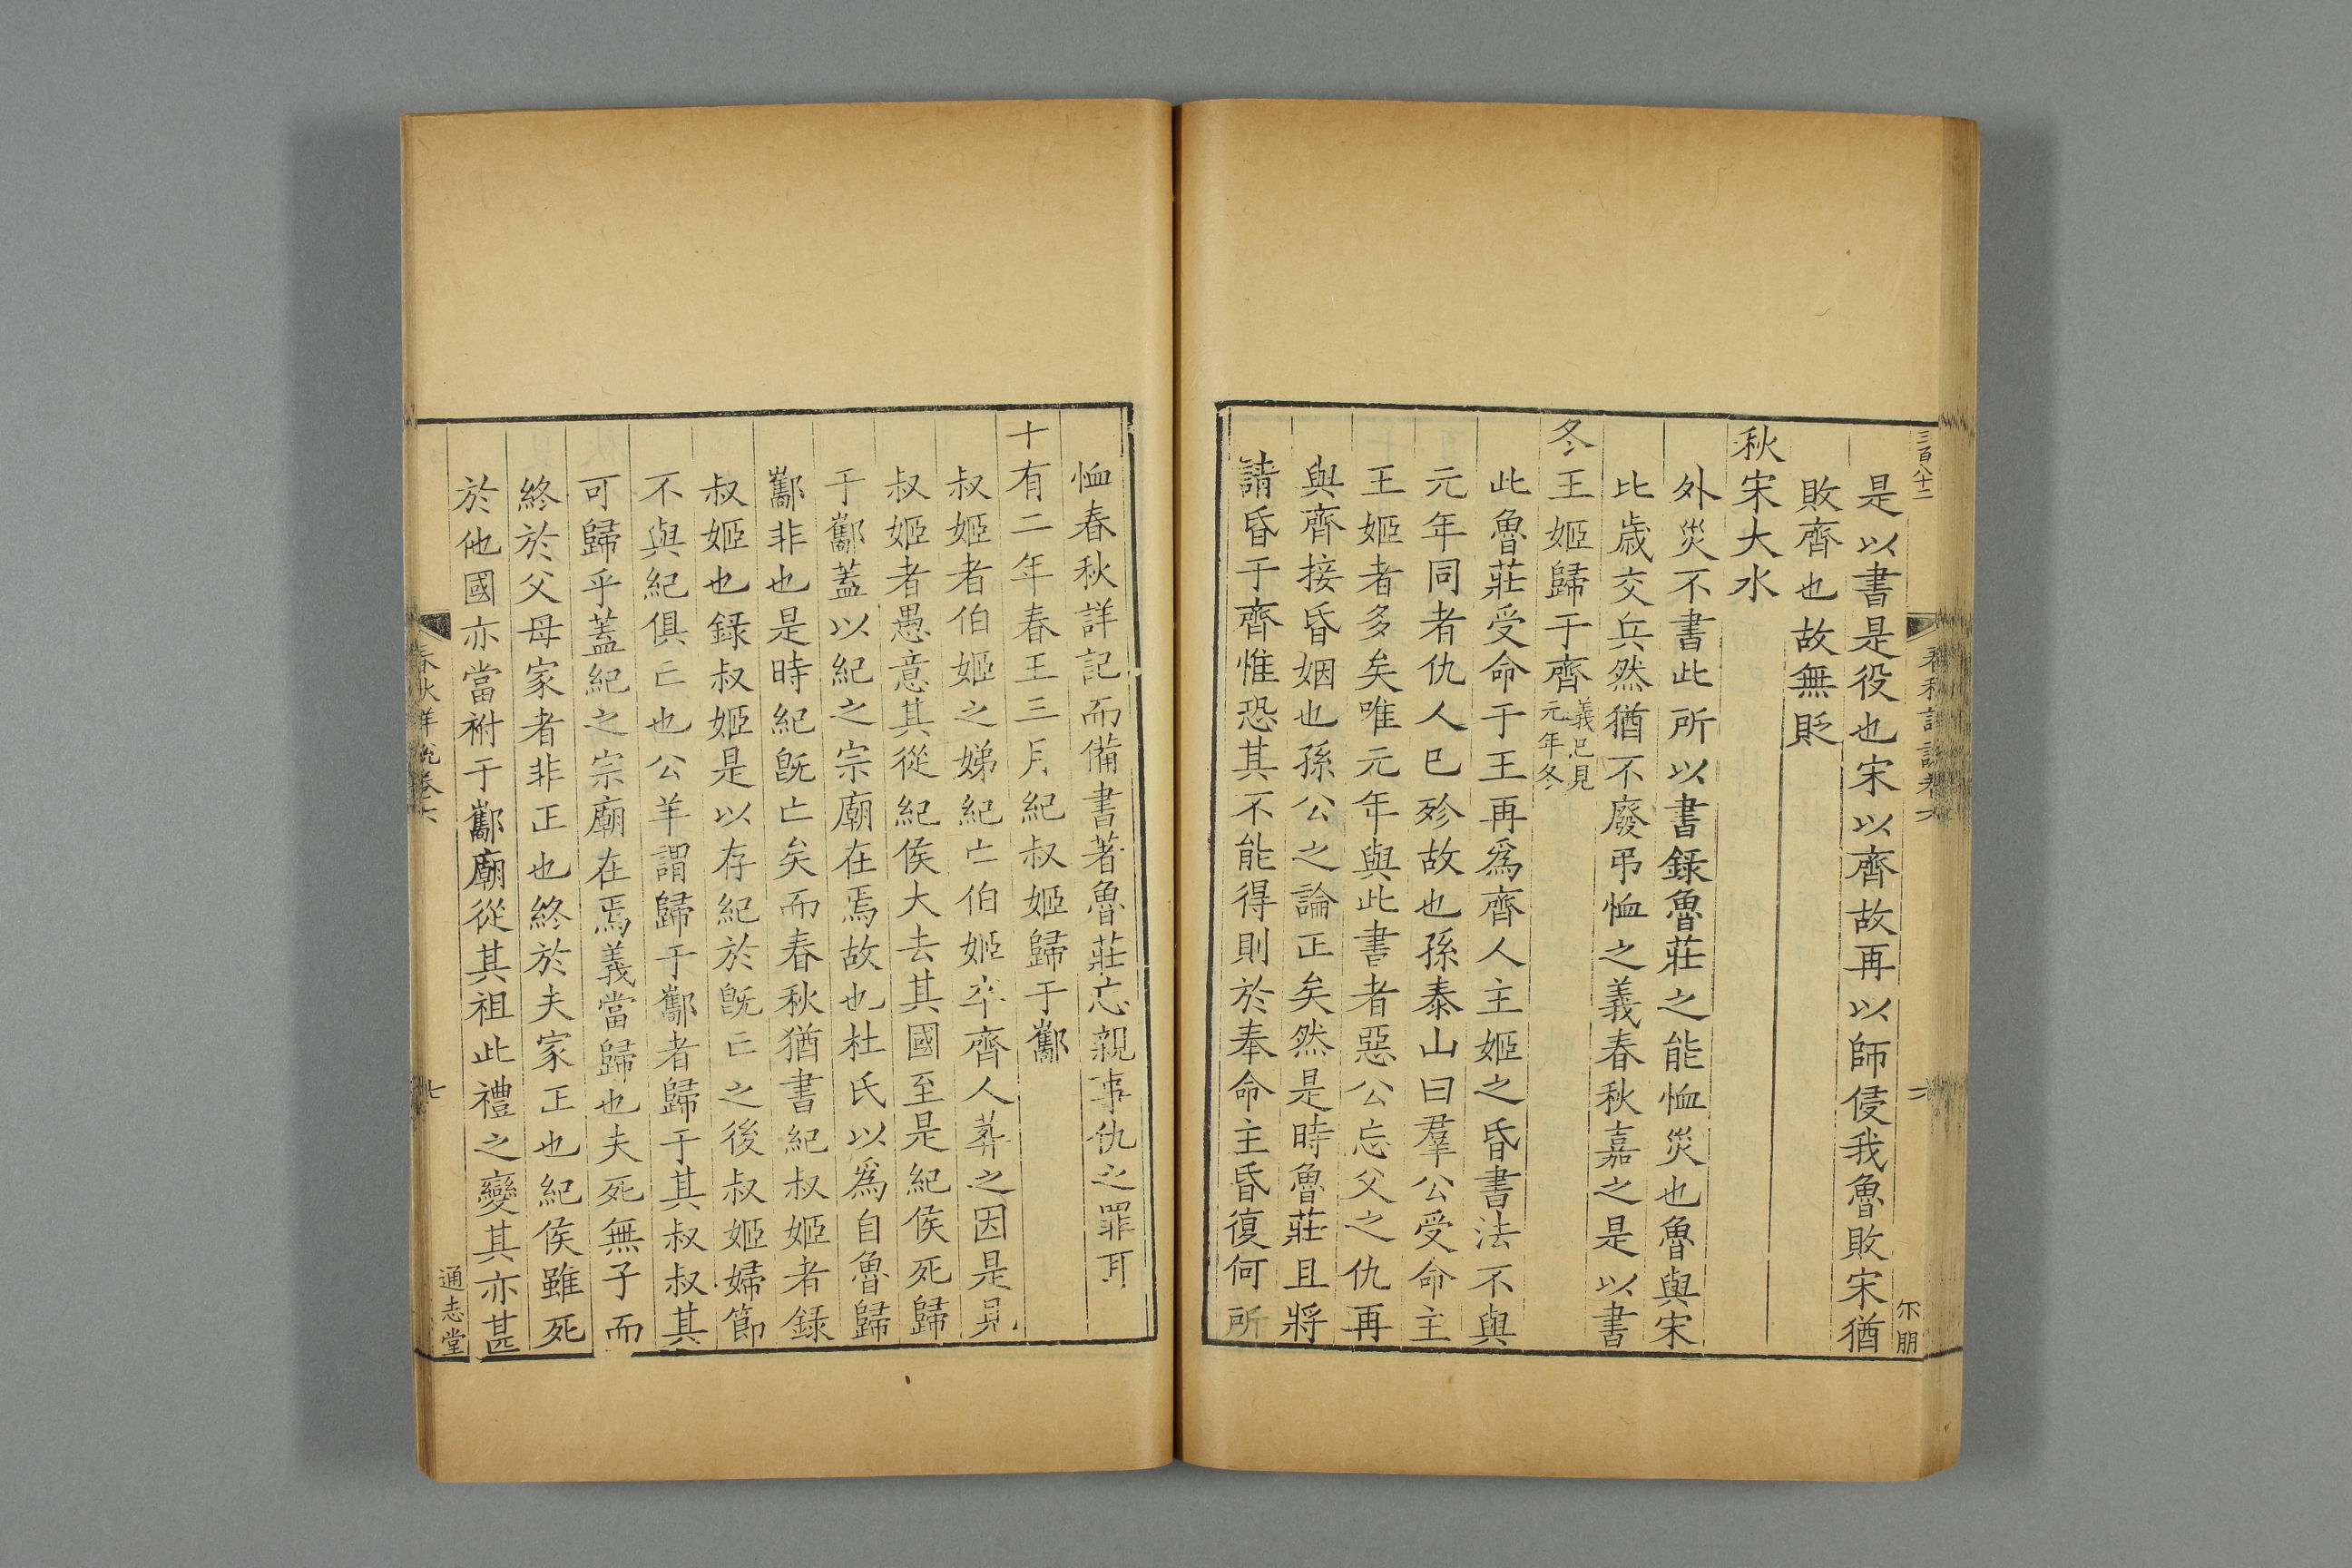 三百八十二
是以書是役也宋以齊故再以師侵我魯敗宋猶
敗齊也故無貶
秋宋大水
外災不書此所以書録魯莊之能恤災也魯與宋
比歳交兵然猶不廢弔恤之義春秋嘉之是以書
冬王姬歸于齊義已見元年冬
此魯莊受命于王再爲齊人主姬之昏書法不與
元年同者仇人已殄故也孫泰山曰羣公受命主
王姬者多矣唯元年與此書者惡公忘父之仇再
與齊接昏姻也孫公之論正矣然是時魯莊且將
請昏于齊惟恐其不能得則於奉命主昏復何所
尓朋
恤春秋詳記而備書著魯莊忘親事仇之罪耳
十有二年春王三月紀叔姬歸于酅
叔姬者伯姬之娣紀亡伯姬卒齊人葬之因是見
叔姬者愚意其從紀侯大去其國至是紀侯死歸
于酅蓋以紀之宗廟在焉故也杜氏以爲自魯歸
酅非也是時紀旣亡矣而春秋猶書紀叔姬者録
叔姬也録叔姬是以存紀於旣亡之後叔姬婦節
不與紀俱亡也公羊謂歸于酅者歸于其叔叔其
可歸乎蓋紀之宗廟在焉義當歸也夫死無子而
終於父母家者非正也終於夫家正也紀侯雖死
於他國亦當祔于酅廟從其祖此禮之變其亦甚
春秋詳說卷六
七
通志堂